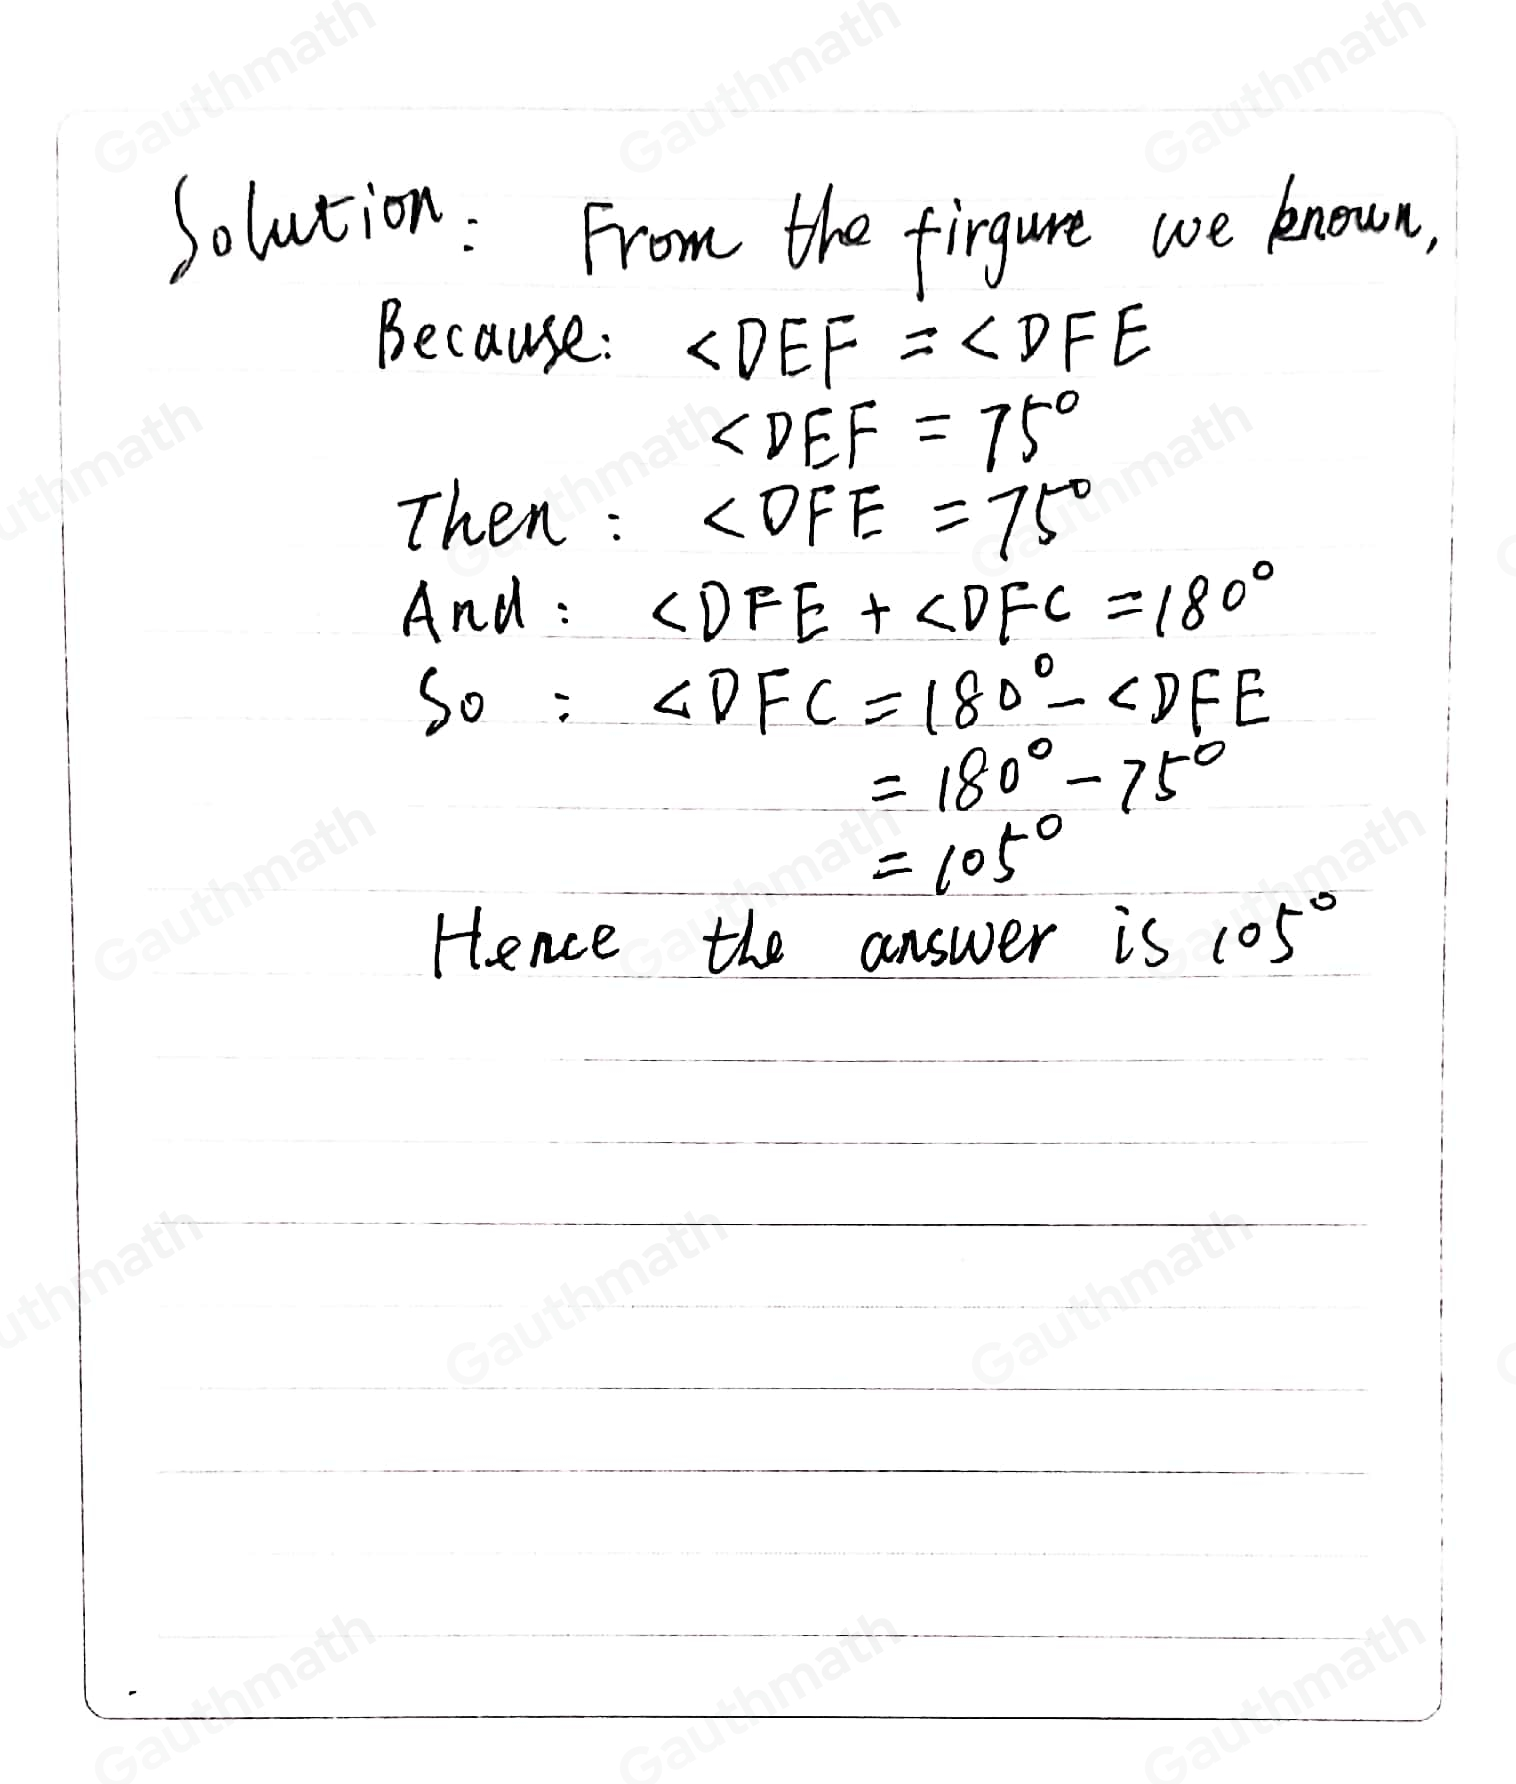 Solution: From the firgure we known,
Because: <DEF = <DFE
<DEF = 75°
Then: <DFE = 75°
And: <DFE + <DFC = 180°
So: <DFC = 180° - <DFE
= 180° - 75°
= 105°
Hence the answer is 105°
Gauthmath